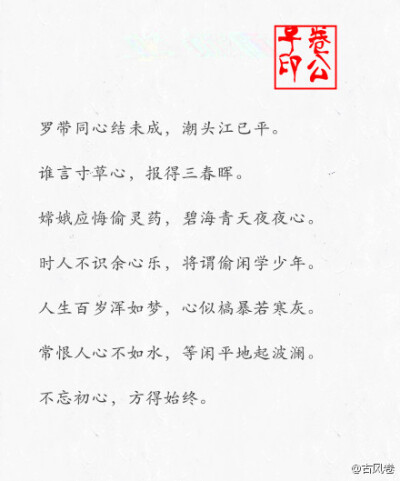 卷公子印
罗带同心结未成，潮头江已平。
谁言寸草心，报得三春晖。
嫦娥应悔偷灵药，碧海青天夜夜心。
时人不识余心乐，将谓偷闲学少年。
人生百岁浑如梦，心似槁暴若寒灰。
常恨人心不如水，等闲平地起波澜。
不忘初心，方得始终。
@古风卷